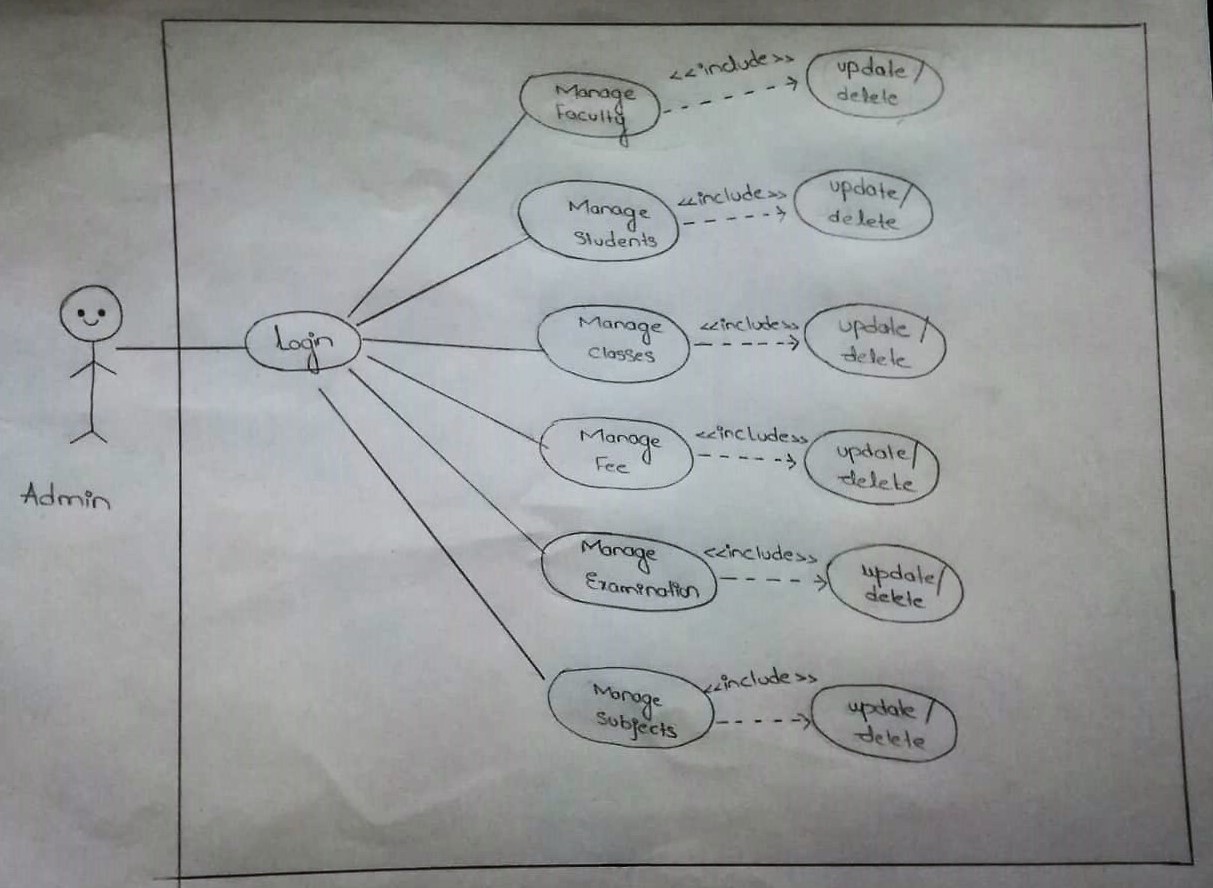 Manage
Faculty
<<include>>
update/
delete
Manage
Students
<<include>>
update/
delete
Login
Manage
Classes
<<include>>
update/
delete
Manage
Fee
<<include>>
update/
delete
Admin
Manage
Examination
<<include>>
update/
delete
Manage
Subjects
<<include>>
update/
delete